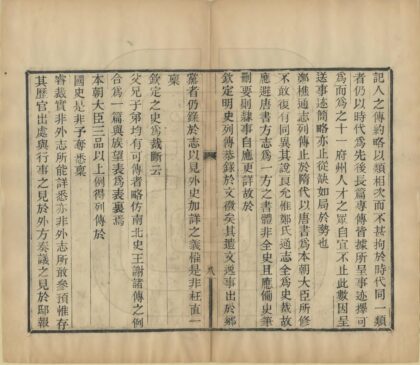 記人之傳約略以類相次而不甚拘於時代同一類
者仍以時代為先後長篇專傳皆據所呈事迹擇可
為而為之十一府州人才之眾自宜不止此數因呈
送事迹簡略亦止從缺如局於勢也
鄭樵通志列傳止於隋代以唐書為本朝大臣所修
不敢復有同異其說良允惟鄭氏通志全為史裁故
應避唐書方志為一方之書體非全史且應備史筆
刪要則隸事自應更詳故於
欽定明史列傳恭錄於文徵矣其鑑文理事出於鄉
黨者仍錄於志以見外史加詳之義權是非枉直一
稟
欽定之史為裁斷云
父兄子弟均有可傳者略仿南北史王謝諸傳之例
合為一篇與族望表為表裏焉
本朝大臣三品以上例得列傳於
國史是非予奪悉稟
睿裁實非外志所能詳悉亦非外志所敢參預惟存
其歷官出處與行事之見於外方奏議之見於邸報